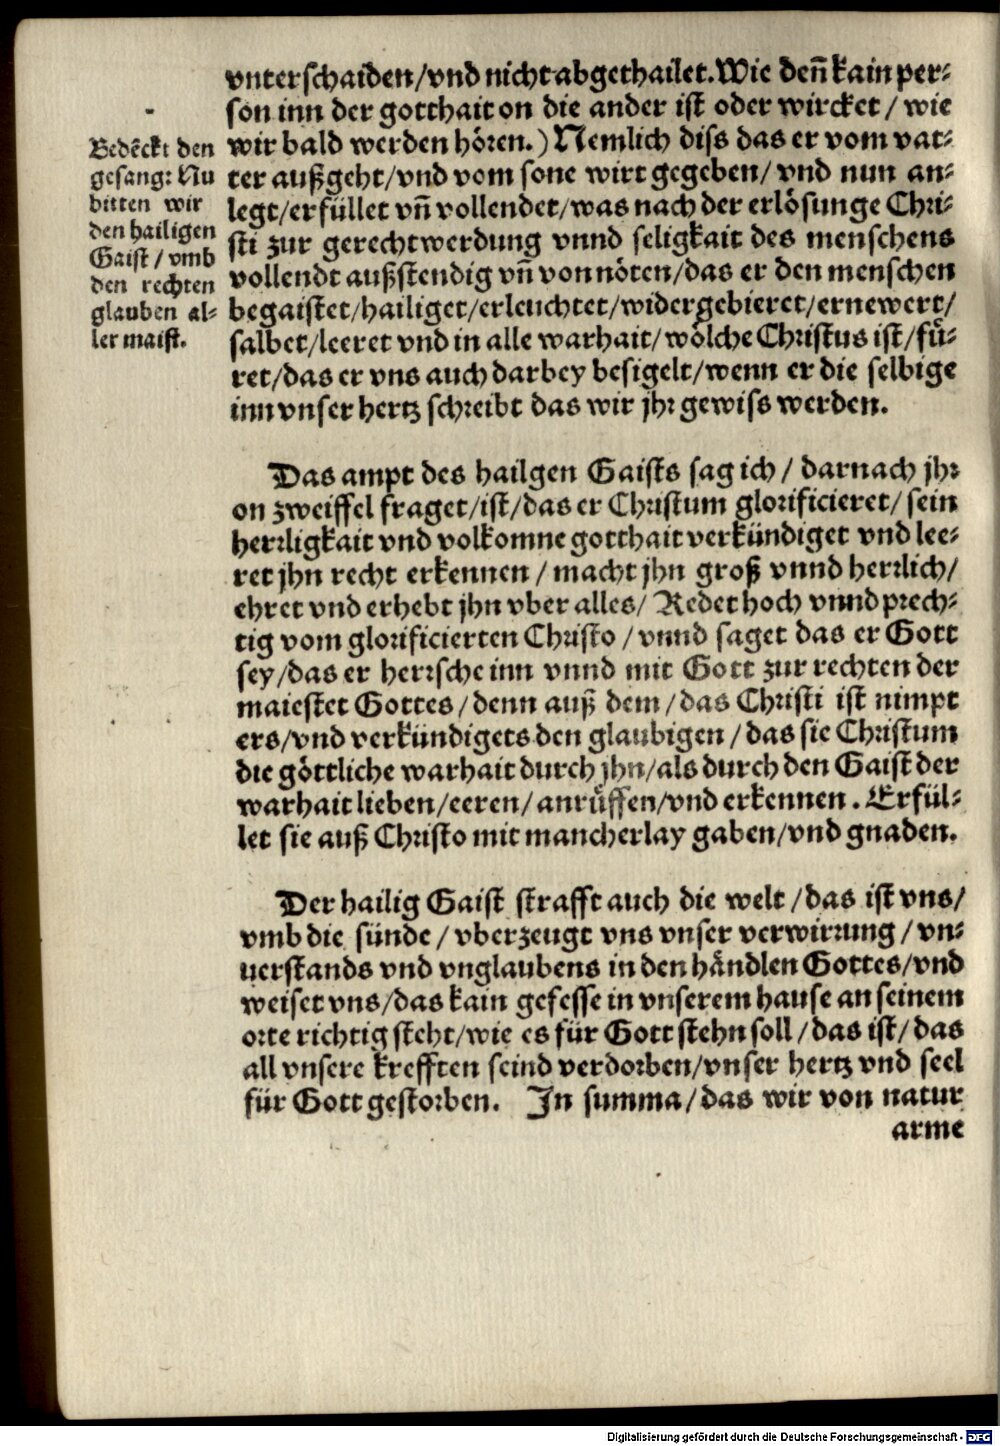 vnterschaiden/vnd nicht abgethailet. Wie deñ kain per⸗
son inn der gotthait on die ander ist oder wircket / wie
wir bald werden hören.) Nemlich diss das er vom vat⸗
ter außgeht/vnd vom sone wirt gegeben/ vnd nun an⸗
legt/erfüllet vñ vollendet/was nach der erlösunge Chri⸗
sti zur gerechtwerdung vnnd seligkait des menschens
vollendt außstendig vñ von nöten/das er den menschen
begaistet/hailiget/erleuchtet/widergebieret/ernewert/
salbet/leeret vnd in alle warhait/wölche Christus ist/fü⸗
ret/das er vns auch darbey besigelt/wenn er die selbige
inn vnser hertz schreibt das wir jhr gewiss werden.
Bedẽckt den
gesang: Nu
bitten wir
den hailigen
Gaist / vmb
den rechten
glauben al⸗
ler maist.
Das ampt des hailgen Gaists sag ich / darnach jhr
on zweiffel fraget/ist/das er Christum glorificieret/ sein
herrligkait vnd volkomne gotthait verkündiget vnd lee⸗
ret jhn recht erkennen / macht jhn groß vnnd herrlich/
ehret vnd erhebt jhn vber alles/ Redet hoch vnnd prech⸗
tig vom glorificierten Christo / vnnd saget das er Gott
sey/das er herrsche inn vnnd mit Gott zur rechten der
maiestet Gottes/denn auß dem/das Christi ist nimpt
ers/vnd verkündigets den glaubigen / das sie Christum
die göttliche warhait durch jhn/als durch den Gaist der
warhait lieben/eeren/anrůffen/vnd erkennen. Erfül⸗
let sie auß Christo mit mancherlay gaben/vnd gnaden.
Der hailig Gaist strafft auch die welt /das ist vns/
vmb die sünde / vberzeugt vns vnser verwirrung / vn⸗
uerstands vnd vnglaubens in den händlen Gottes/vnd
weiset vns/das kain gefesse in vnserem hause an seinem
orte richtig steht/wie es für Gott stehn soll /das ist/ das
all vnsere krefften seind verdorben/vnser hertz vnd seel
für Gott gestorben. In summa/das wir von natur
arme
Digitalisierung gefördert durch die Deutsche Forschungsgemeinschaft - DFG